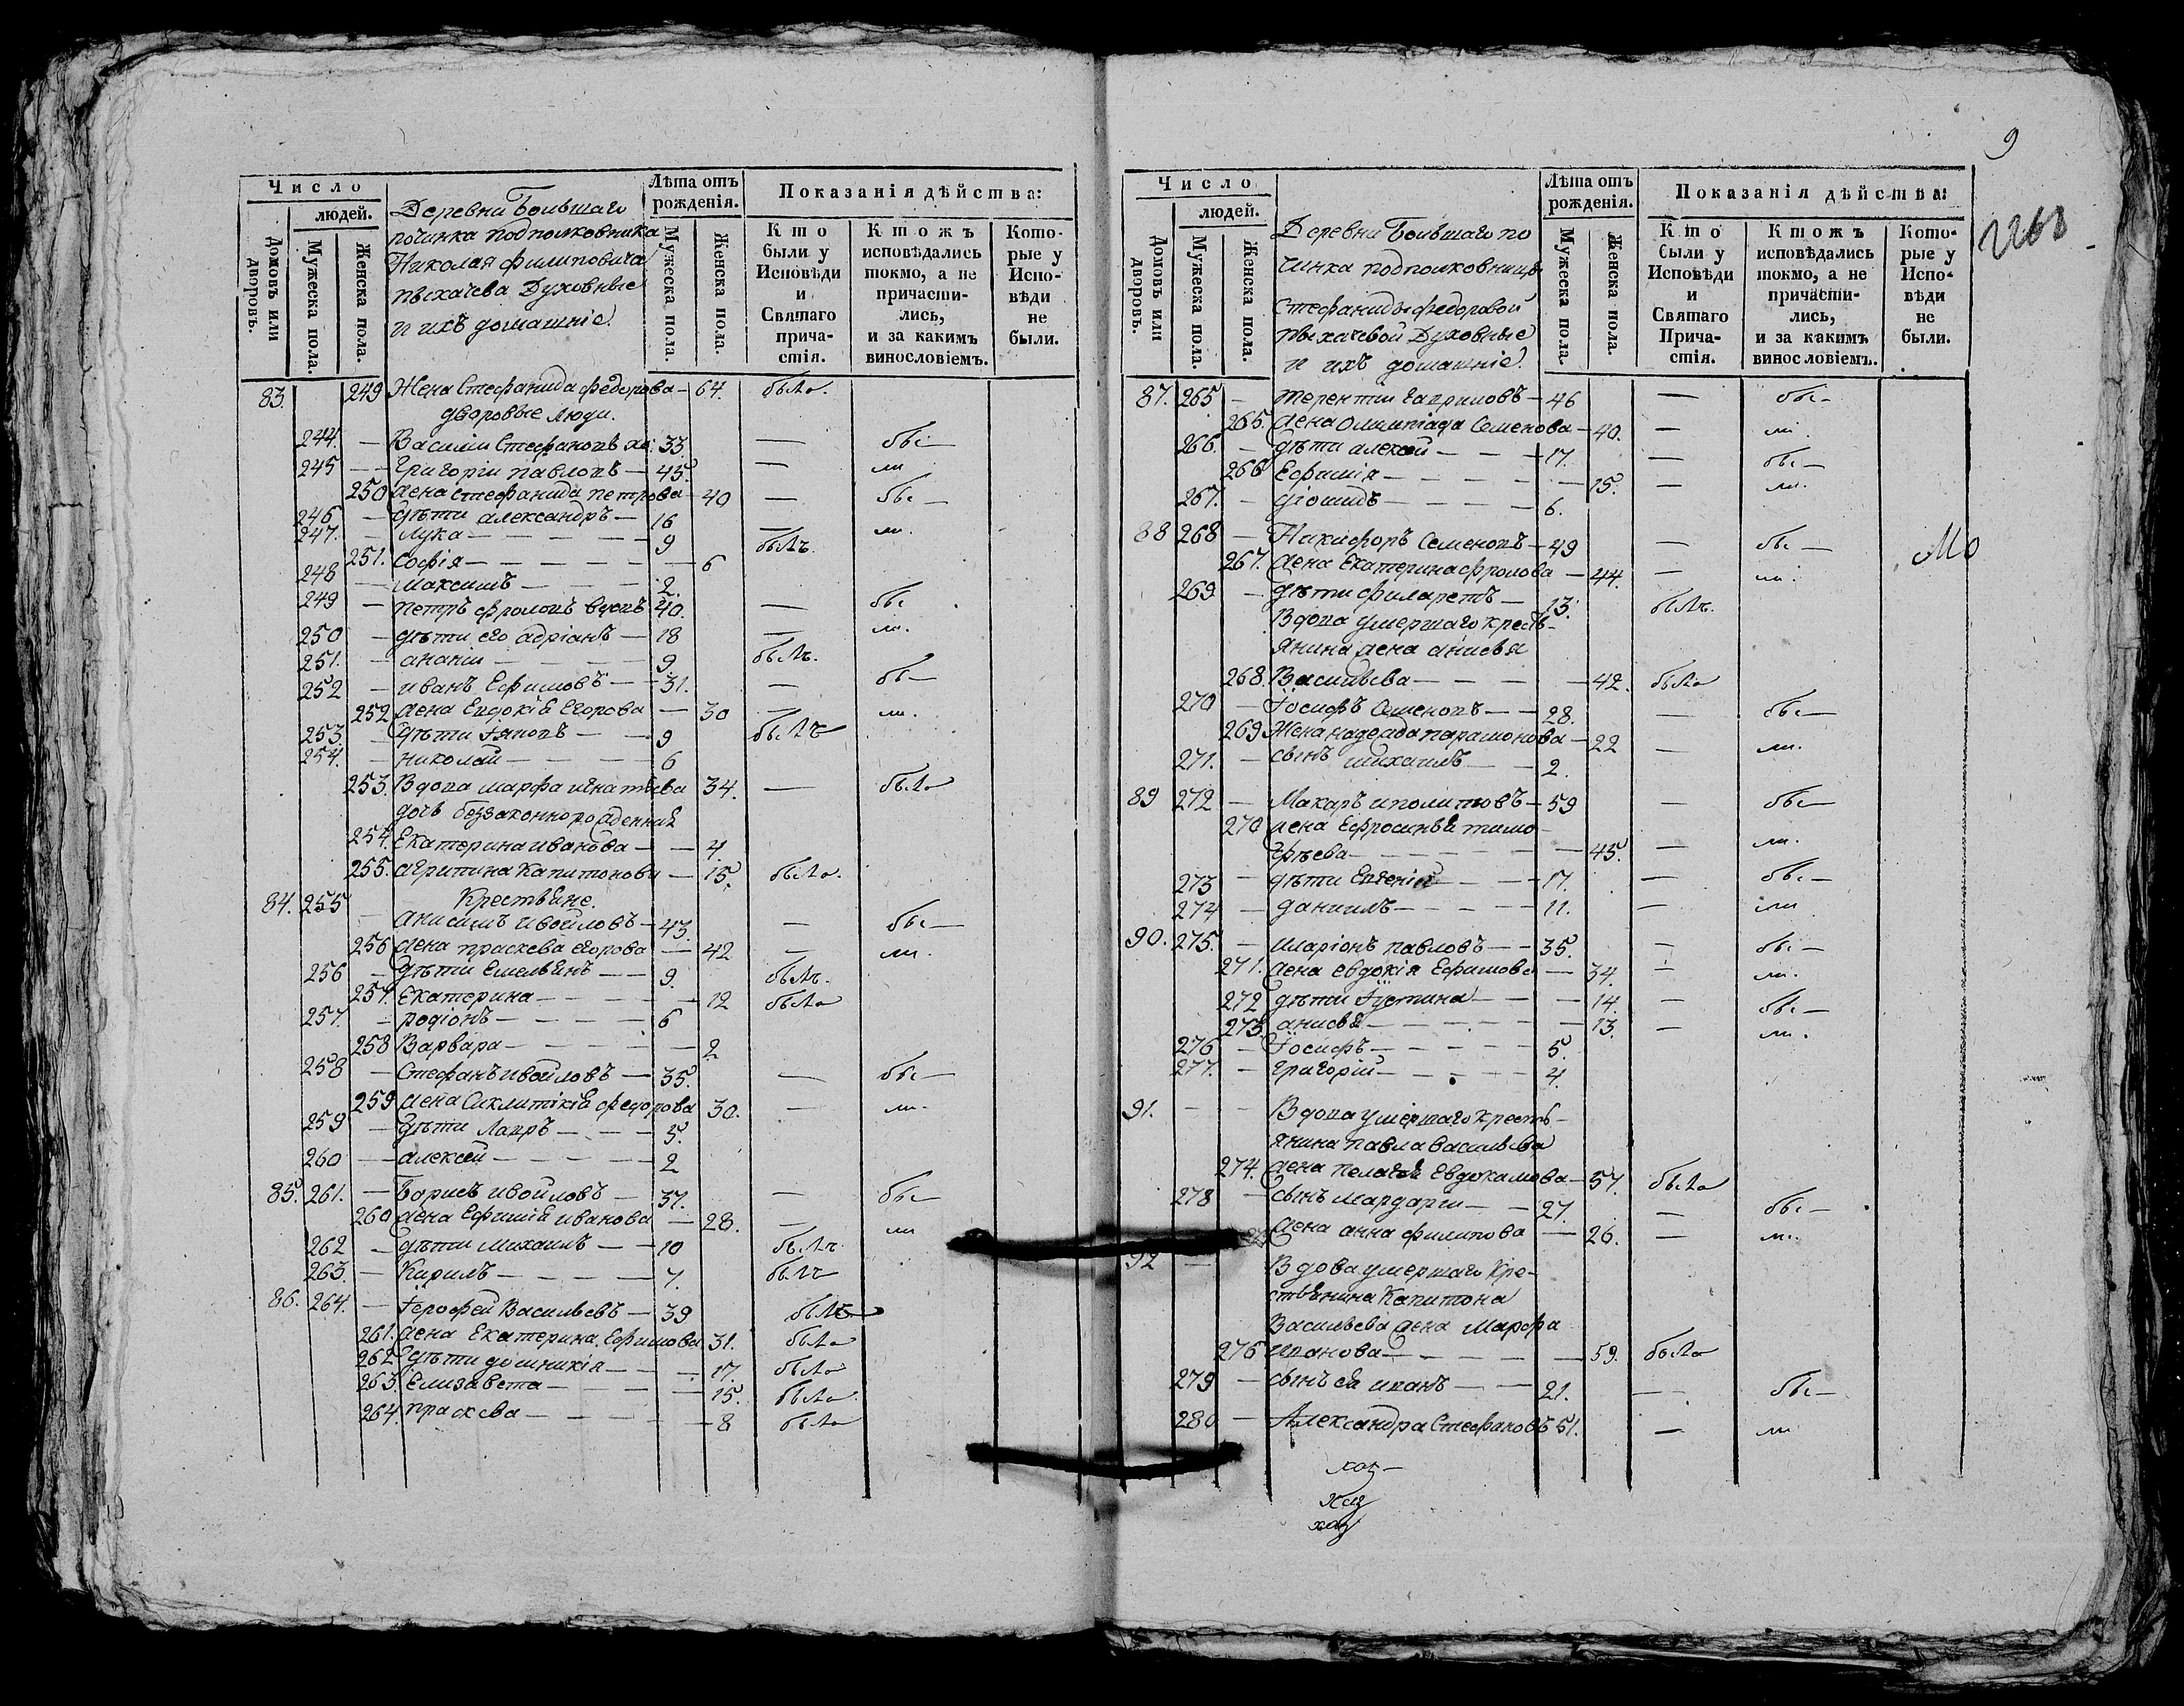 Число
людей.
Домовъ или дворовъ.
Мужеска пола.
Женска пола.
Деревни Большаго
починка подполковника
Николая Филиповича
Пыхачева Духовные
и ихъ домашніе.
Лѣта отъ рожденія.
Мужеска пола.
Женска пола.
Показанія дѣйства:
Кто были у Исповѣди и Святаго причастія.
Ктожъ исповѣдались токмо, а не причастились, и за какимъ винословіемъ.
Которые у Исповѣди не были.
83. 249 Жена Стефанида Федорова — 64. была.
дворовые люди.
244. — Василіи Стефановъ 33. — бы —
245 — Григоріи Павловъ — 45. — ли
250 жена Стефанида Петрова — 40 — бы —
246 — дѣти Александръ — 16 — ли.
247. — Лука — 9 былъ.
251. Софія — 6
248 — Максимъ — 2.
249 — Петръ Фроловъ 40. — бы
250 — дѣти его Адріанъ — 18 — ли.
251. — Ананіи — 9 былъ.
252 — Иванъ Ефимовъ — 31. — бы —
252 жена Евдокія Егорова — 30 — ли.
253. — дѣти — 9 былъ
254. — Николай — 6
253. Вдова Марфа Игнатьева 34. — была
дочь беззаконнорожденная
254. Екатерина Иванова — 4.
255. Агрипина Капитонова — 15. была.
Крестьяне.
84. 255 — Анисимъ Ивойловъ — 43. — бы —
256 жена Праскева Егорова — 42 — ли.
256 — дѣти Емельянъ — 9. былъ.
257. Екатерина — 12 была
257. — Родіонъ — 6
258 Варвара — 2
258 — Стефанъ Ивойловъ — 35. — бы —
259 жена Сиклитикія Федорова 30. — ли.
259 — дѣти Лавръ — 5.
260 — Алексей — 2
85. 261. — Борисъ Ивойловъ — 37. — бы —
260 жена Ефимія Иванова — 28. — ли
262 — дѣти Михаилъ — 10 былъ.
263. — Кирилъ — 7. былъ
86. 264. — Іерофей Васильевъ — 39 былъ
261. жена Екатерина Ефимова 31. была
262 дѣти Домникія — 17. была
263. Елизавета — 15. была
264. Праскева — 8 была
9
Число
людей.
Домовъ или дворовъ.
Мужеска пола.
Женска пола.
Деревни Большаго по
чинка подполковницы
Стефаниды Федоровой
Пыхачевой Духовные
и ихъ домашніе.
Лѣта отъ рожденія.
Мужеска пола.
Женска пола.
Показанія дѣйства:
Кто были у Исповѣди и Святаго Причастія.
Ктожъ исповѣдались токмо, а не причастились, и за какимъ винословіемъ.
Которые у Исповѣди не были.
87. 265 — Терентіи Гавриловъ — 46 — бы —
265. жена Олимпіада Семенова — 40. — ли.
266. — дѣти Алексей — 17. — бы —
266 Ефимія — 15. — ли.
267. — Діомидъ — 6.
88 268 — Никифоръ Семеновъ — 49 — бы —
267. жена Екатерина Фролова — 44. — ли.
269 — дѣти Филаретъ — 13. былъ.
Вдова умершаго кресть-
янина жена Анисья
268. Васильева — 42. была
270 — Іосифъ Семеновъ — 28. — бы —
269 Жена Надежда Парамонова — 22 — ли.
271. — сынъ Михаилъ — 2.
89 272 — Макаръ Иполитовъ — 59 — бы —
270 жена Ефросинья Тимо-
фѣева — 45. — ли.
273 — дѣти Евгеніи — 17. — бы —
274 — Даніилъ — 11. — ли
90. 275. — Иларіонъ Павловъ — 35. — бы —
271. жена Евдокія Ефимова — 34. — ли.
272 дѣти Іустина — 14. — бы —
273. Анисья — 13. — ли.
276 — Іосифъ — 5.
277. — Григорій — 4.
91. — — Вдова умершаго кресть-
янина Павла Васильева
274. жена Пелагея Евдокимова — 57. была
278 — сынъ Мардарій — 27. — бы —
жена Анна Филипова — 26. — ли.
92 — Вдова умершаго кре-
стьянина Капитона
Васильева жена Марфа
276 Иванова — 59. была
279 — сынъ ея Иванъ — 21. — бы —
280 — Александра Стефановъ 51. — ли